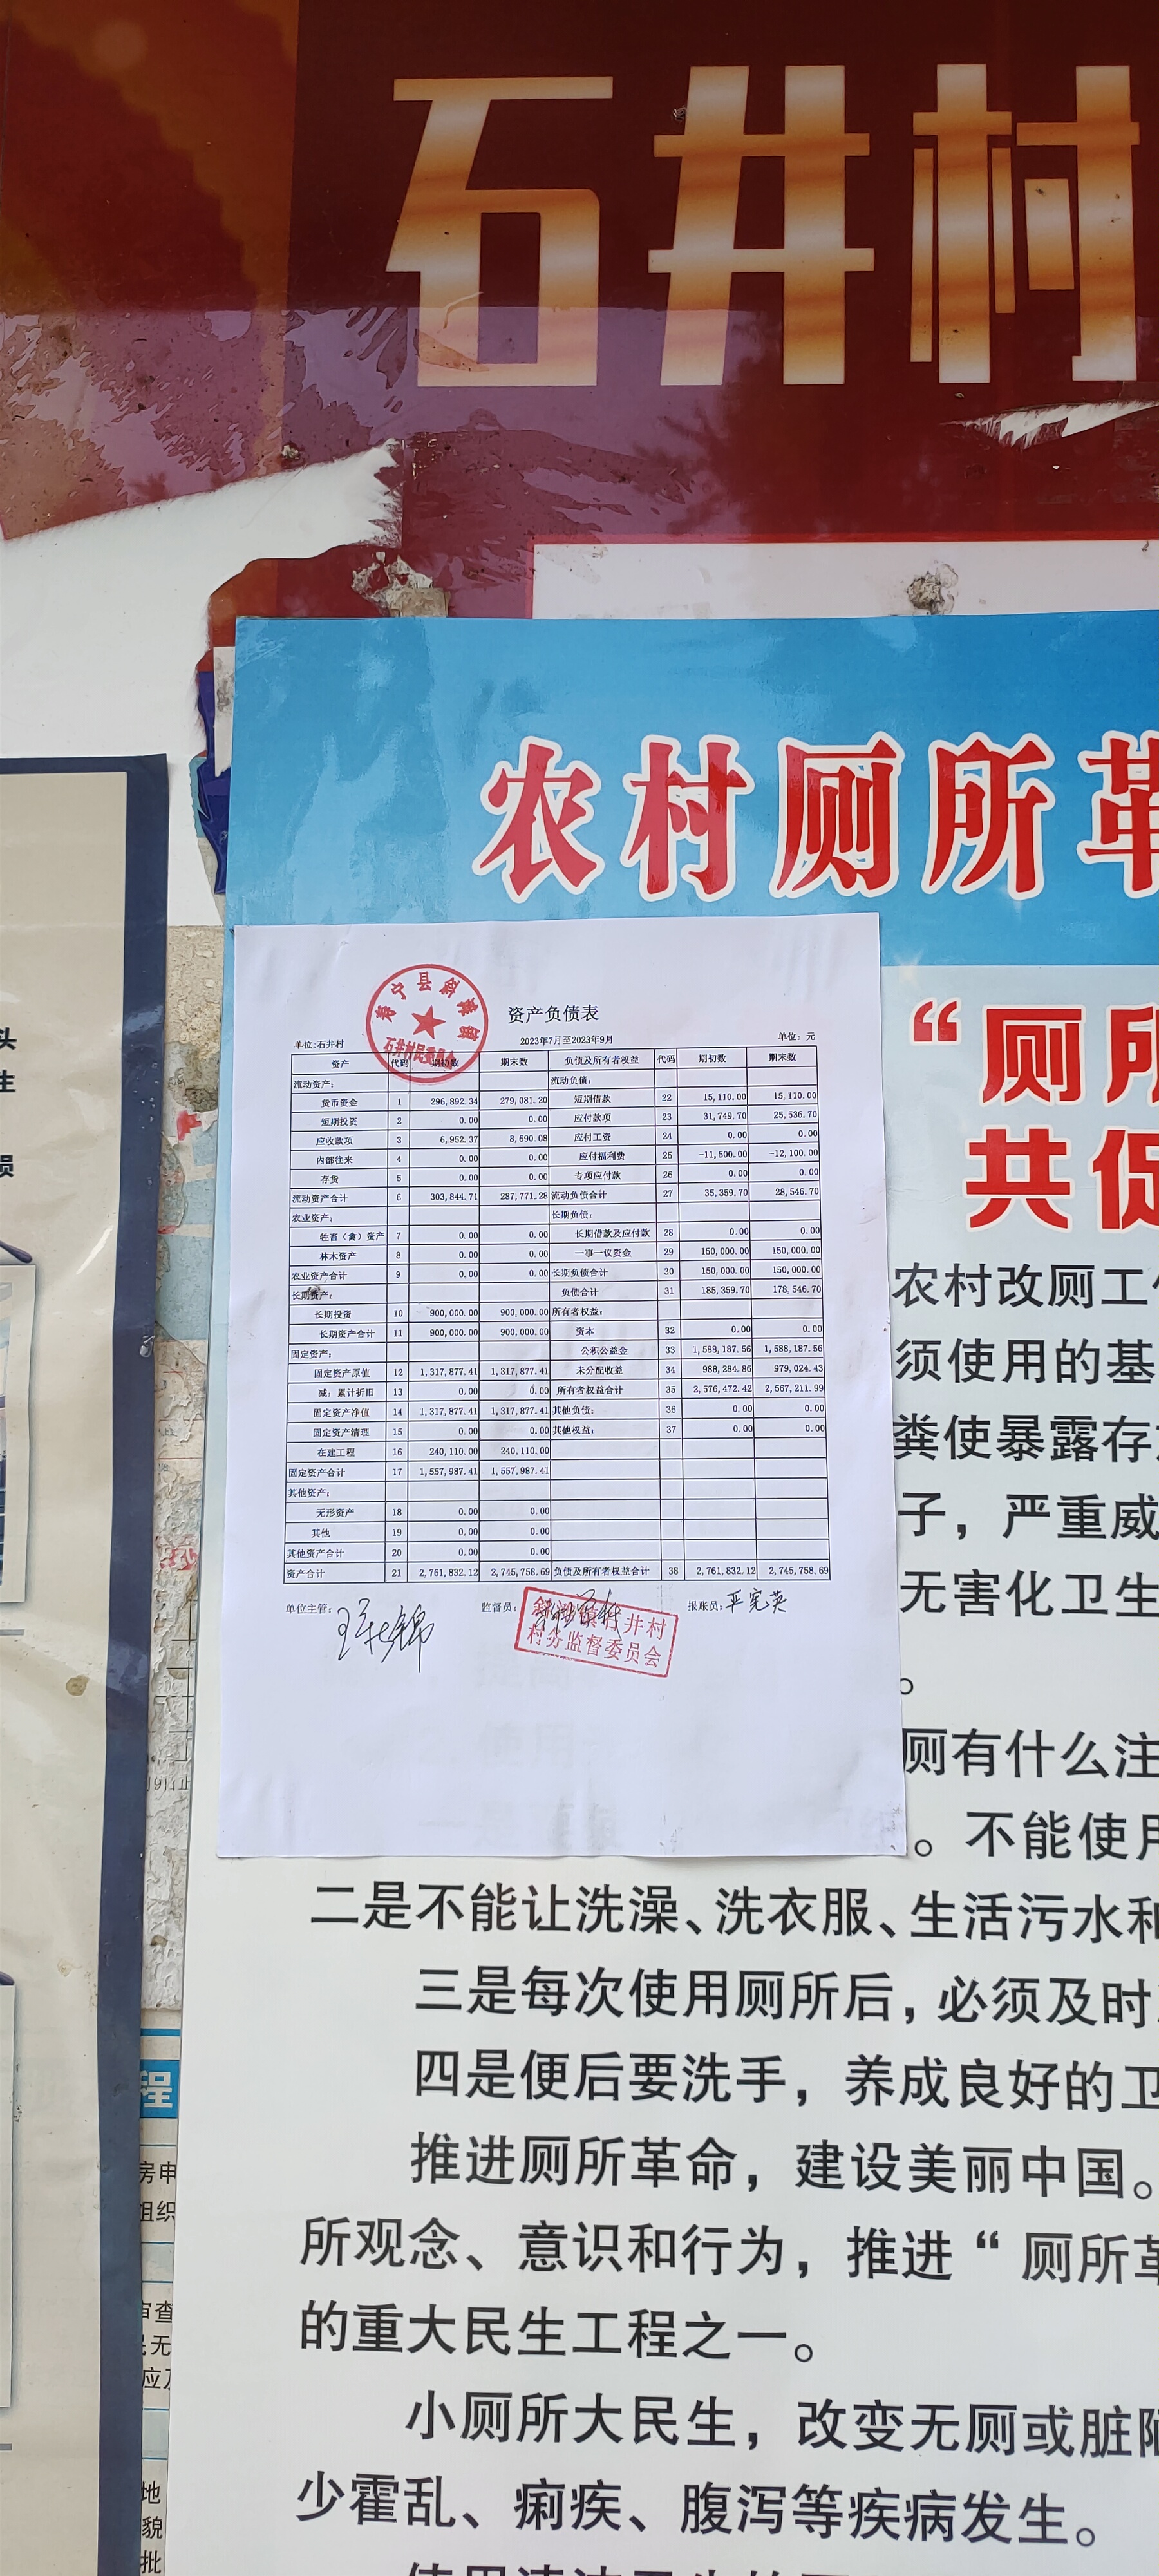 石井村
农村厕所革
“厕所
共促
寿宁县斜滩镇
石井村民委员会
资产负债表
单位:石井村 2023年7月至2023年9月 单位：元
资产 代码 期初数 期末数 负债及所有者权益 代码 期初数 期末数
流动资产： 流动负债：
货币资金 1 296,892.34 279,081.20 短期借款 22 15,110.00 15,110.00
短期投资 2 0.00 0.00 应付款项 23 31,749.70 25,536.70
应收款项 3 6,952.37 8,690.08 应付工资 24 0.00 0.00
内部往来 4 0.00 0.00 应付福利费 25 -11,500.00 -12,100.00
存货 5 0.00 0.00 专项应付款 26 0.00 0.00
流动资产合计 6 303,844.71 287,771.28 流动负债合计 27 35,359.70 28,546.70
农业资产： 长期负债：
牲畜（禽）资产 7 0.00 0.00 长期借款及应付款 28 0.00 0.00
林木资产 8 0.00 0.00 一事一议资金 29 150,000.00 150,000.00
农业资产合计 9 0.00 0.00 长期负债合计 30 150,000.00 150,000.00
长期资产： 负债合计 31 185,359.70 178,546.70
长期投资 10 900,000.00 900,000.00 所有者权益：
长期资产合计 11 900,000.00 900,000.00 资本 32 0.00 0.00
固定资产： 公积公益金 33 1,588,187.56 1,588,187.56
固定资产原值 12 1,317,877.41 1,317,877.41 未分配收益 34 988,284.86 979,024.43
减：累计折旧 13 0.00 0.00 所有者权益合计 35 2,576,472.42 2,567,211.99
固定资产净值 14 1,317,877.41 1,317,877.41 其他负债： 36 0.00 0.00
固定资产清理 15 0.00 0.00 其他权益： 37 0.00 0.00
在建工程 16 240,110.00 240,110.00
固定资产合计 17 1,557,987.41 1,557,987.41
其他资产：
无形资产 18 0.00 0.00
其他 19 0.00 0.00
其他资产合计 20 0.00 0.00
资产合计 21 2,761,832.12 2,745,758.69 负债及所有者权益合计 38 2,761,832.12 2,745,758.69
单位主管： 监督员： 报账员：
斜滩镇石井村
村务监督委员会
农村改厕工作
须使用的基
粪使暴露存放
子，严重威
无害化卫生
。
厕有什么注
。不能使用
二是不能让洗澡、洗衣服、生活污水和
三是每次使用厕所后，必须及时
四是便后要洗手，养成良好的卫
推进厕所革命，建设美丽中国。
所观念、意识和行为，推进“厕所革
的重大民生工程之一。
小厕所大民生，改变无厕或脏陋
少霍乱、痢疾、腹泻等疾病发生。
头
生
损
程
房申
组织
审查
民无
应及
地
貌
批